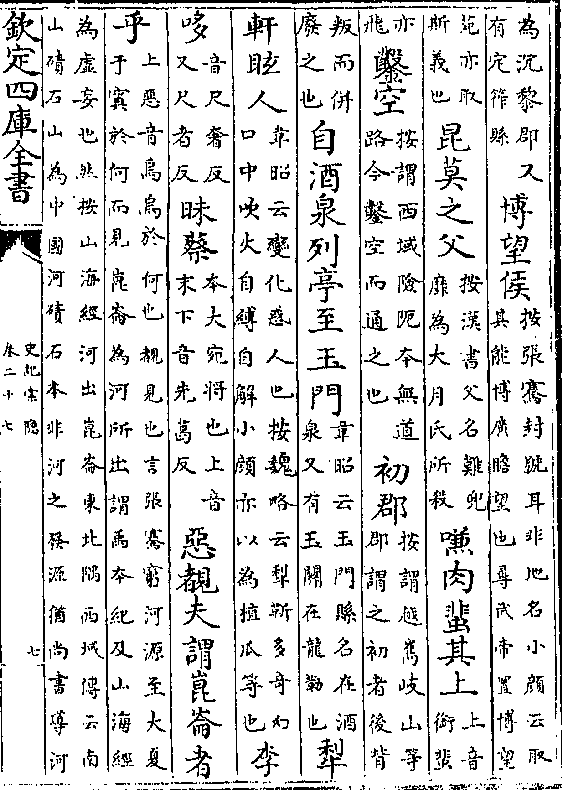 為沉黎郡又有定筰縣 博望侯 按張騫封號耳非地名小顔云取其能博廣瞻望也尋武帝置博望
苑亦取斯義也 昆莫之父 按漢書父名難兜靡為大月氏所殺 嗛肉蜚其上 上音銜蜚
亦飛 鑿空 按謂西域險阨本無道路今鑿空而通之也 初郡 按謂越嶲岐山等郡謂之初者後背
叛而併廢之也 自酒泉列亭至玉門 韋昭云玉門縣名在酒泉又有玉關在龍勒也 犁
軒眩人 韋昭云變化惑人也按魏略云犁靳多奇幻口中吹火自縛自解小顔亦以為植瓜等也 李
哆 音尺奢反又尺者反 昧蔡 本大宛將也上音末下音先葛反 惡覩夫謂崑崙者
乎 上惡音烏烏於何也覩見也言張騫窮河源至大夏于窴於何而見崑崙為河所出謂禹本紀及山海經
為虛妄也然按山海經河出崑崙東北隅西域傳云南山積石山為中國河積石本非河之發源猶尚書導河
欽定四庫全書
史記索隱
卷二十七
七